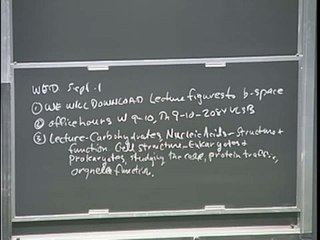 WED Sept. 1
① WE WILL DOWNLOAD Lecture figures to b-space
② office hours W 9-10, Th 9-10 - 2084 VLSB
③ Lecture - Carbohydrates, Nucleic Acids - Structure +
function Cell structure - Eukaryotes +
prokaryotes, studying the cell, protein traffic,
organelle function,